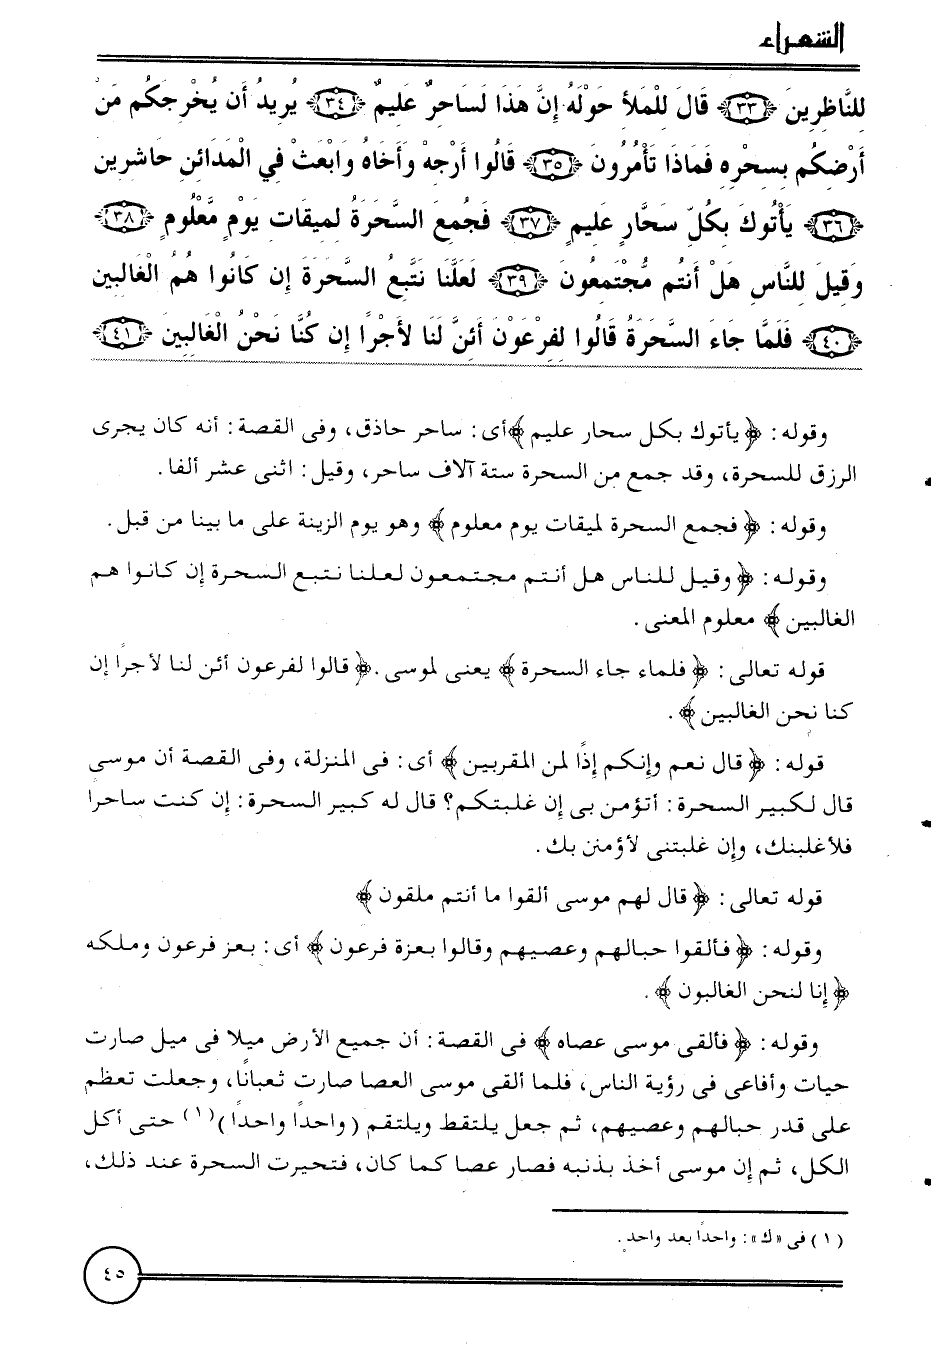 الشعراء
للنَّاظِرِينَ ﴿٣٣﴾ قَالَ لِلْمَلأِ حَوْلَهُ إِنَّ هَذَا لَسَاحِرٌ عَلِيمٌ ﴿٣٤﴾ يُرِيدُ أَن يُخْرِجَكُم مِّنْ
أَرْضِكُم بِسِحْرِهِ فَمَاذَا تَأْمُرُونَ ﴿٣٥﴾ قَالُوا أَرْجِهْ وَأَخَاهُ وَابْعَثْ فِي الْمَدَائِنِ حَاشِرِينَ
﴿٣٦﴾ يَأْتُوكَ بِكُلِّ سَحَّارٍ عَلِيمٍ ﴿٣٧﴾ فَجُمِعَ السَّحَرَةُ لِمِيقَاتِ يَوْمٍ مَّعْلُومٍ ﴿٣٨﴾
وَقِيلَ لِلنَّاسِ هَلْ أَنتُم مُّجْتَمِعُونَ ﴿٣٩﴾ لَعَلَّنَا نَتَّبِعُ السَّحَرَةَ إِن كَانُوا هُمُ الْغَالِبِينَ
﴿٤٠﴾ فَلَمَّا جَاءَ السَّحَرَةُ قَالُوا لِفِرْعَوْنَ أَئِنَّ لَنَا لأَجْرًا إِن كُنَّا نَحْنُ الْغَالِبِينَ ﴿٤١﴾
وقوله: ﴿يأتوك بكل سحار عليم﴾ أى: ساحر حاذق، وفى القصة: أنه كان يجرى
الرزق للسحرة، وقد جمع من السحرة ستة آلاف ساحر، وقيل: اثنى عشر ألفا.
وقوله: ﴿فجمع السحرة لميقات يوم معلوم﴾ وهو يوم الزينة على ما بينا من قبل.
وقوله: ﴿وقيل للناس هل أنتم مجتمعون لعلنا نتبع السحرة إن كانوا هم
الغالبين﴾ معلوم المعنى.
قوله تعالى: ﴿فلماء جاء السحرة﴾ يعنى لموسى. ﴿قالوا لفرعون أئن لنا لأجرًا إن
كنا نحن الغالبين﴾.
قوله: ﴿قال نعم وإنكم إذًا لمن المقربين﴾ أى: فى المنزلة، وفى القصة أن موسى
قال لكبير السحرة: أتؤمن بى إن غلبتكم؟ قال له كبير السحرة: إن كنت ساحرا
فلأغلبنك، وإن غلبتنى لأؤمنن بك.
قوله تعالى: ﴿قال لهم موسى ألقوا ما أنتم ملقون﴾
وقوله: ﴿فألقوا حبالهم وعصيهم وقالوا بعزة فرعون﴾ أى: بعز فرعون وملكه
﴿إنا لنحن الغالبون﴾.
وقوله: ﴿فألقى موسى عصاه﴾ فى القصة: أن جميع الأرض ميلا فى ميل صارت
حيات وأفاعى فى رؤية الناس، فلما ألقى موسى العصا صارت ثعبانًا، وجعلت تعظم
على قدر حبالهم وعصيهم، ثم جعل يلتقط ويلتقم (واحدًا واحدًا)(١) حتى أكل
الكل، ثم إن موسى أخذ بذنبه فصار عصا كما كان، فتحيرت السحرة عند ذلك،
(١) فى «ك»: واحدًا بعد واحد.
٤٥